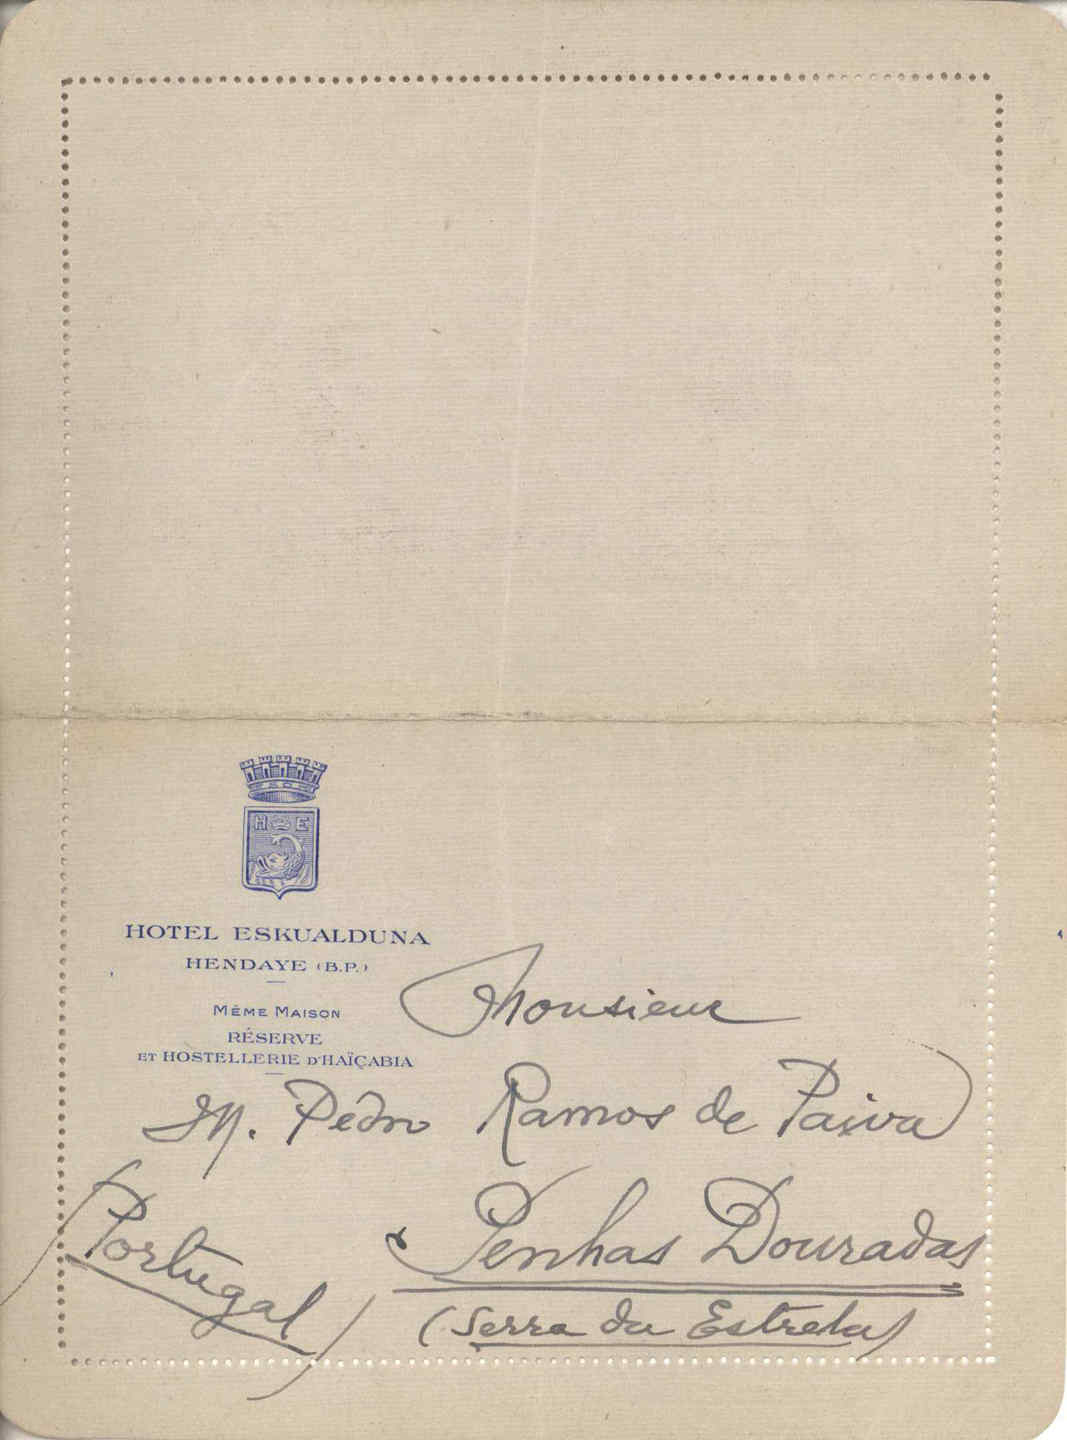 H E
HOTEL ESKUALDUNA
HENDAYE (B.P.)
MÊME MAISON
RÉSERVE
ET HOSTELLERIE D'HAÏÇABIA
Monsieur
M. Pedro Ramos de Paiva
Penhas Douradas
(Serra da Estrela)
Portugal